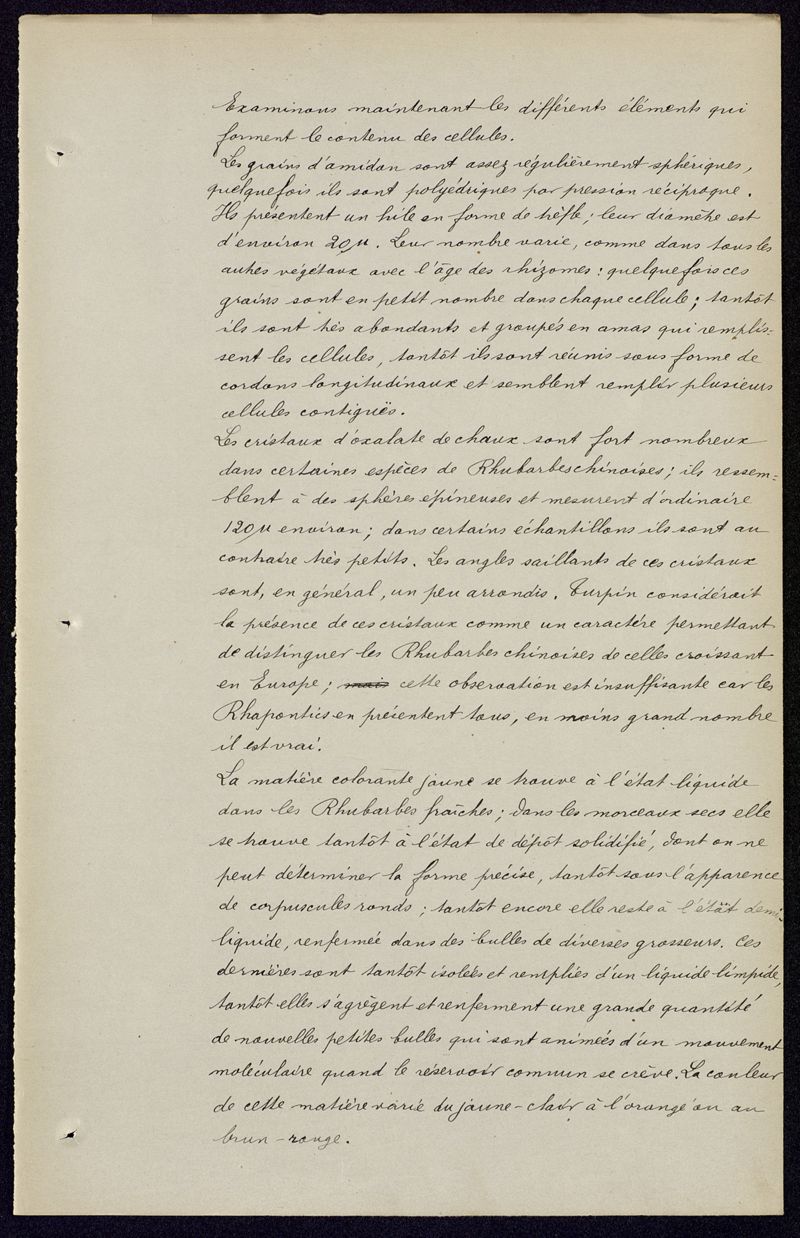 Examinons maintenant les différents éléments qui
forment le contenu des cellules.
Les grains d'amidon sont assez régulièrement sphériques,
quelquefois ils sont polyédriques par pression réciproque.
Ils présentent un hile en forme de trèfle; leur diamètre est
d'environ 20 µ. Leur nombre varie, comme dans tous les
autres végétaux avec l'âge des rhizomes: quelquefois ces
grains sont en petit nombre dans chaque cellule; tantôt
ils sont très abondants et groupés en amas qui remplis-
sent les cellules, tantôt ils sont réunis sous forme de
cordons longitudinaux et semblent remplir plusieurs
cellules contiguës.
Les cristaux d'oxalate de chaux sont fort nombreux
dans certaines espèces de Rhubarbes chinoises; ils ressem=
blent à des sphères épineuses et mesurent d'ordinaire
120 µ environ; dans certains échantillons ils sont au
contraire très petits. Les angles saillants de ces cristaux
sont, en général, un peu arrondis. Turpin considérait
la présence de ces cristaux comme un caractère permettant
de distinguer les Rhubarbes chinoises de celles croissant
en Europe; mais cette observation est insuffisante car les
Rhapontics en présentent tous, en moins grand nombre
il est vrai.
La matière colorante jaune se trouve à l'état liquide
dans les Rhubarbes fraîches; dans les morceaux secs elle
se trouve tantôt à l'état de dépôt solidifié, dont on ne
peut déterminer la forme précise, tantôt sous l'apparence
de corpuscules ronds; tantôt encore elle reste à l'état demi-
liquide, renfermée dans des bulles de diverses grosseurs. Ces
dernières sont tantôt isolées et remplies d'un liquide limpide,
tantôt elles s'agrègent et renferment une grande quantité
de nouvelles petites bulles qui sont animées d'un mouvement
moléculaire quand le réservoir commun se crève. La couleur
de cette matière varie du jaune-clair à l'orangé ou au
brun-rouge.